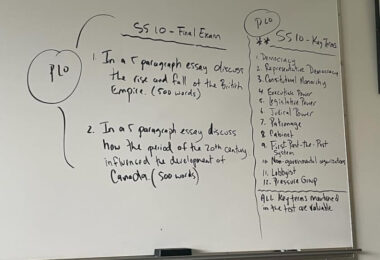 PLO
SS 10 - Final Exam
1. In a 5 paragraph essay discuss
the rise and fall of the British
Empire. (500 words)
2. In a 5 paragraph essay discuss
how the period of the 20th century
influenced the development of
Canada. (500 words)
PLO
** SS 10 - Key Terms
1. Democracy
2. Representative Democracy
3. Constitutional Monarchy
4. Executive Power
5. Legislative Power
6. Judical Power
7. Patronage
8. Cabinet
9. First-Past-the-Post
System
10. Non-governmental organizations
11. Lobbyist
12. Pressure Group
ALL Key terms mentioned
on the test are valuable